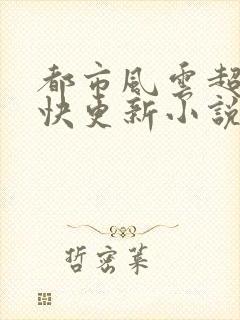 都市風雲超
快更新小說
哲密葉